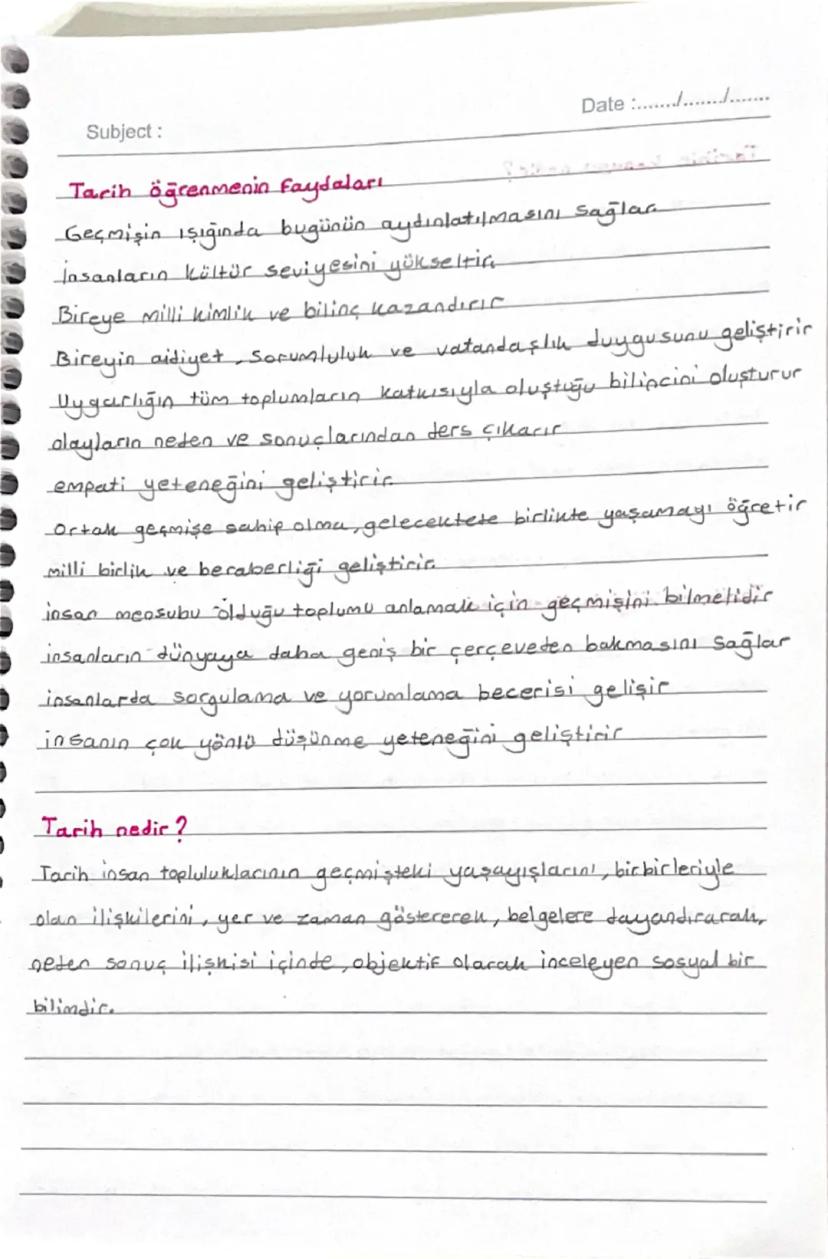 Date :......./......./.......
Subject :
Tarih öğrenmenin faydaları
Geçmişin ışığında bugünün aydınlatılmasını sağlar.
İnsanların kültür seviyesini yükseltir.
Bireye milli kimlik ve bilinç kazandırır
Bireyin aidiyet, sorumluluk ve vatandaşlık duygusunu geliştirir
Uygarlığın tüm toplumların katkısıyla oluştuğu bilincini oluşturur
olayların neden ve sonuçlarından ders çıkarır
empati yeteneğini geliştirir.
Ortak geçmişe sahip olma, gelecektete birlikte yaşamayı öğretir
milli birlik ve beraberliği geliştirir.
insan mensubu olduğu toplumu anlamak için geçmişini bilmelidir
insanların dünyaya daha geniş bir çerçeveden bakmasını sağlar
insanlarda sorgulama ve yorumlama becerisi gelişir
insanın çok yönlü düşünme yeteneğini geliştirir
Tarih nedir?
Tarih insan topluluklarının geçmişteki yaşayışlarını, birbirleriyle
olan ilişkilerini, yer ve zaman göstererek, belgelere dayandırarak,
neden sonuç ilişkisi içinde, objektif olarak inceleyen sosyal bir
bilimdir.